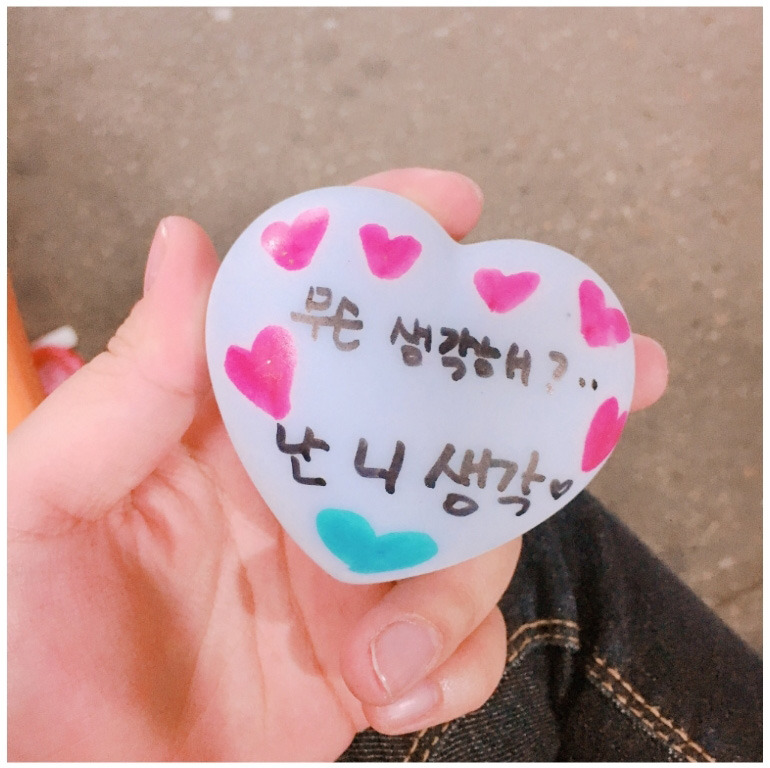 무슨 생각해?..
난 니 생각♡